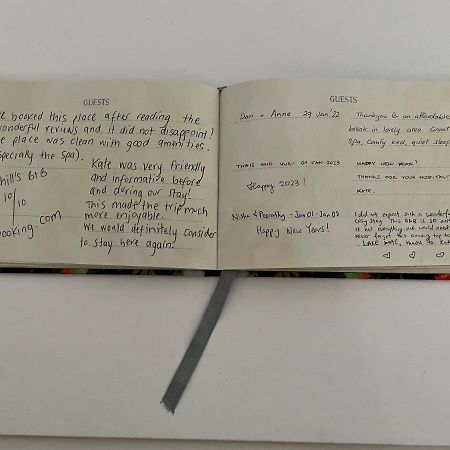 GUESTS
booked this place after reading the
wonderful reviews and it did not disappoint!
place was clean with good amenities.
especially the spa).
Kate was very friendly
and informative before
and during our stay!
This made the trip much
more enjoyable.
We would definitely consider
to stay here again.
hill's B&B
10/10
booking.com
GUESTS
Don & Anne 29 Jan '22
Thankyou for an affordable
break in lovely area. Great
Spa, comfy bed, quiet sleep
01 JAN 2023
Happy 2023!
HAPPY NEW YEAR!
THANKS FOR YOUR HOSPITALITY
KATE.
Nisha & Poorathy - Jan 01 - Jan 02
Happy New Years!
I did not expect such a wonderful
cosy stay. This B&B is so
it has everything one would need
never forget this amazing trip to
LAKE thanks to Kate